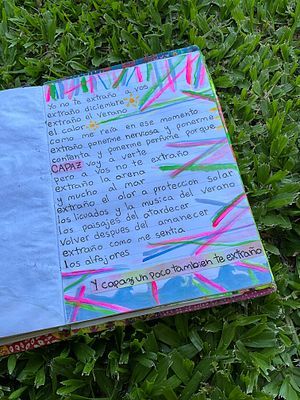 Yo no te extraño a vos
extraño diciembre
extraño el verano
el calor
como me reía en ese momento
extraño ponerme nerviosa y ponerme
contenta y ponerme perfume porque
CAPAZ voy a verte
pero a vos no te extraño
extraño la arena
y mucho al mar
extraño el olor a proteccion solar
los licuados y la musica del verano
los paisajes del atardecer
Volver despues del amanecer
extraño como me sentia
los alfajores
Y capaz un poco tambien te extraño